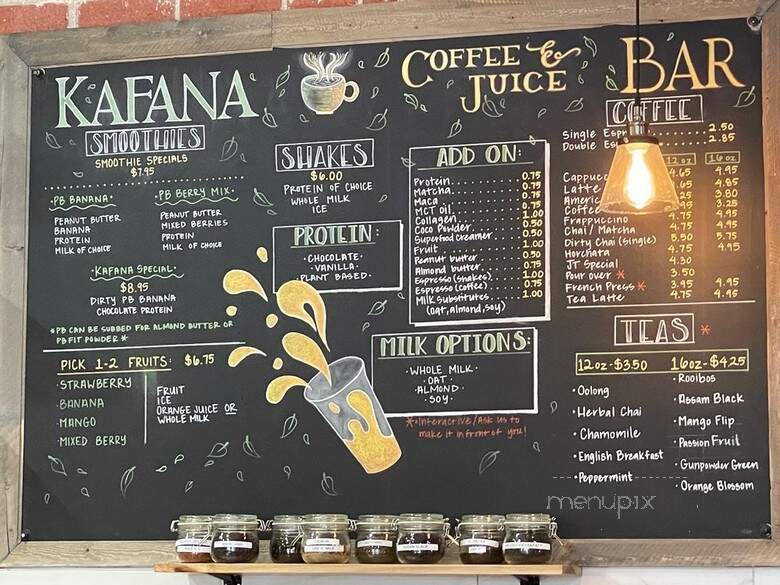 KAFANA
COFFEE & JUICE BAR
SMOOTHIES
SMOOTHIE SPECIALS
$7.95
·PB BANANA·
PEANUT BUTTER
BANANA
PROTEIN
MILK OF CHOICE
·PB BERRY MIX·
PEANUT BUTTER
MIXED BERRIES
PROTEIN
MILK OF CHOICE
·KAFANA SPECIAL·
$8.95
DIRTY PB BANANA
CHOCOLATE PROTEIN
*PB CAN BE SUBBED FOR ALMOND BUTTER OR
PB FIT POWDER*
PICK 1-2 FRUITS: $6.75
·STRAWBERRY
·BANANA
·MANGO
·MIXED BERRY
FRUIT
ICE
ORANGE JUICE OR
WHOLE MILK
SHAKES
$6.00
PROTEIN OF CHOICE
WHOLE MILK
ICE
PROTEIN:
·CHOCOLATE·
·VANILLA·
·PLANT BASED·
ADD ON:
Protein 0.75
Matcha 0.75
Maca 0.75
MCT oil 0.75
Collagen 1.00
Coco Powder 0.50
Superfood creamer 0.50
Fruit 1.00
Peanut butter 0.50
Almond butter 0.75
Espresso (shakes) 1.00
Espresso (coffee) 0.75
Milk substitutes 1.00
(oat, almond, soy)
MILK OPTIONS:
·WHOLE MILK·
·OAT·
·ALMOND·
·SOY·
*=Interactive/Ask us to
make it in front of you!
COFFEE
Single 2.50
Double 2.85
12 oz 16 oz
4.65 4.95
Latte 4.65 4.85
3.80
Coffee 3.25
Frappuccino 4.75 4.95
Chai / Matcha 4.75 4.95
Dirty Chai (single) 5.50 5.75
Horchata 4.75 4.95
JT Special 4.30
Pour over * 3.50
French Press * 3.95 4.95
Tea Latte 4.75 4.95
TEAS *
12oz-$3.50 16oz-$4.25
·Oolong
·Herbal Chai
·Chamomile
·English Breakfast
·Peppermint
·Rooibos
·Assam Black
·Mango Flip
·Passion Fruit
·Gunpowder Green
·Orange Blossom
menupix